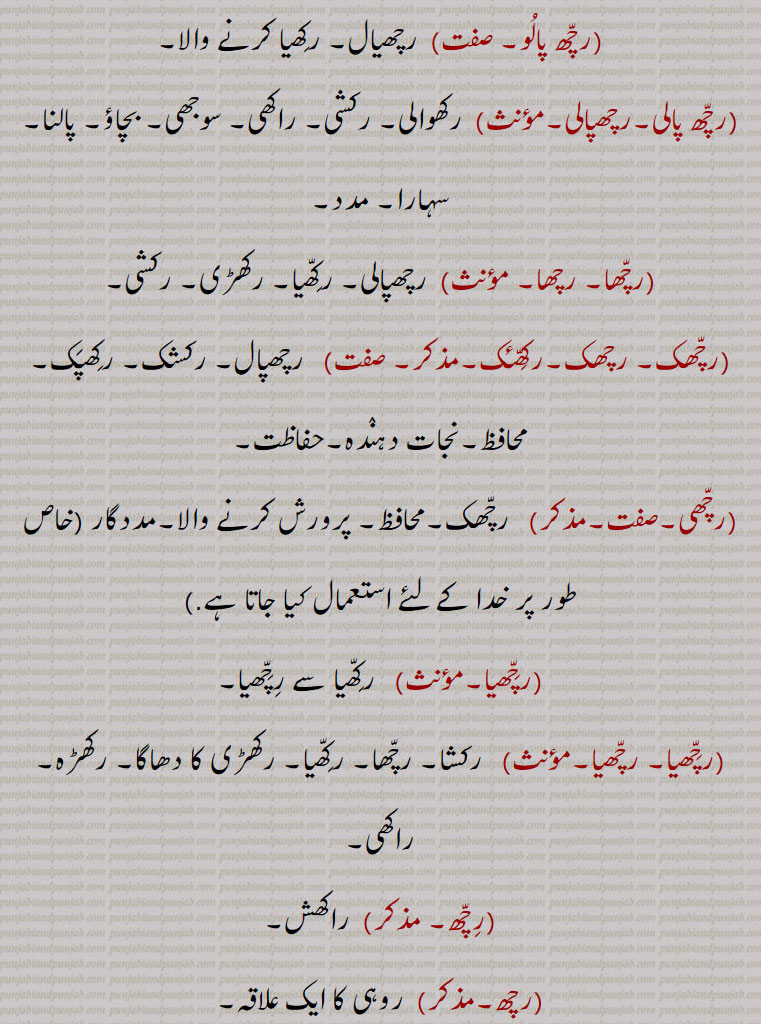 (رچّھ پالُو۔ صفت) رچھیال۔ رکھیا کرنے والا۔
(رچّھ پالی۔رچھپالی۔مؤنث) رکھوالی۔ رکشی۔ راکھی۔ سوجھی۔ بچاؤ۔ پالنا۔
سہارا۔ مدد۔
(رچّھا۔ رچھا۔ مؤنث) رچھپالی۔ رکھّیا۔ رکھڑی۔ رکشی۔
(رچّھک۔ رچھک۔رکھّئک۔مذکر۔ صفت) رچھپال۔ رکشک۔ رکھپَک۔
محافظ۔نجات دہندہ۔حفاظت۔
(رچّھی۔صفت۔مذکر) رچّھک۔محافظ۔ پرورش کرنے والا۔مددگار (خاص
طور پر خدا کے لئے استعمال کیا جاتا ہے.)
(رچّھیا۔مؤنث) رکھّیا سے رِچّھیا۔
(رچّھیا۔ رچّھیا۔مؤنث) رکشا۔ رچّھا۔ رکھّیا۔ رکھڑی کا دھاگا۔ رکھڑہ۔
راکھی۔
(رِچّھ۔ مذکر) راکھش۔
(رچھ۔مذکر) روہی کا ایک علاقہ۔